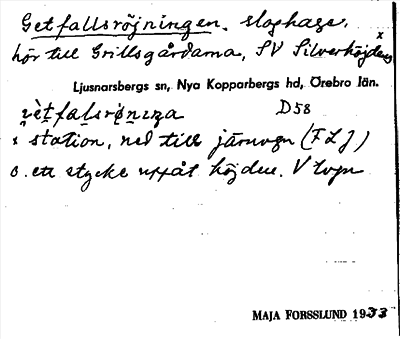 Getfallsröjningen. sloghage,
hör till Grillsgårdarna, SV Silverhöjdens
x
Ljusnarsbergs sn, Nya Kopparbergs hd, Örebro län.
D58
x station, ned till järnvgn (FLJ)
o. ett stycke uppåt höjden. V lvgn
MAJA FORSSLUND 1933